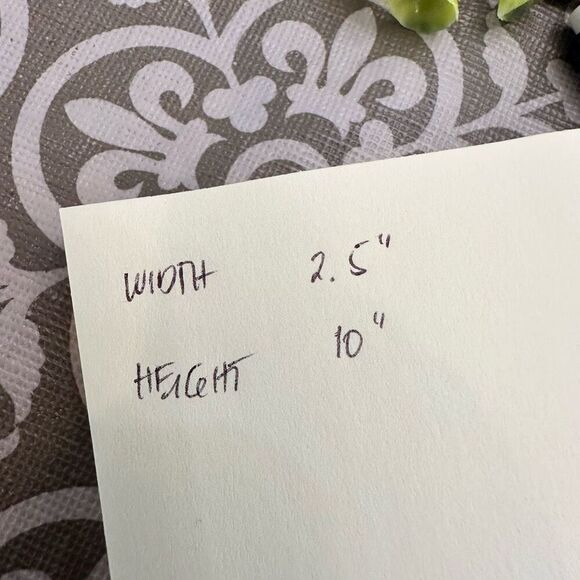 WIDTH 2.5"
HEIGHT 10"